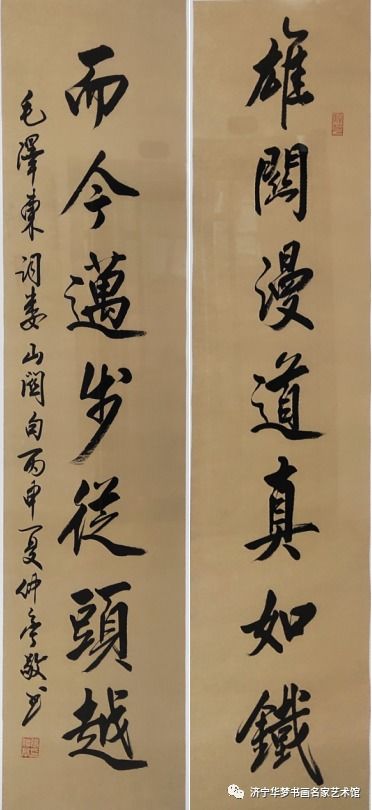 雄關漫道真如鐵
而今邁步從頭越
毛澤東詞婁山關句丙申夏仲
敬书
济宁华梦书画名家艺术馆